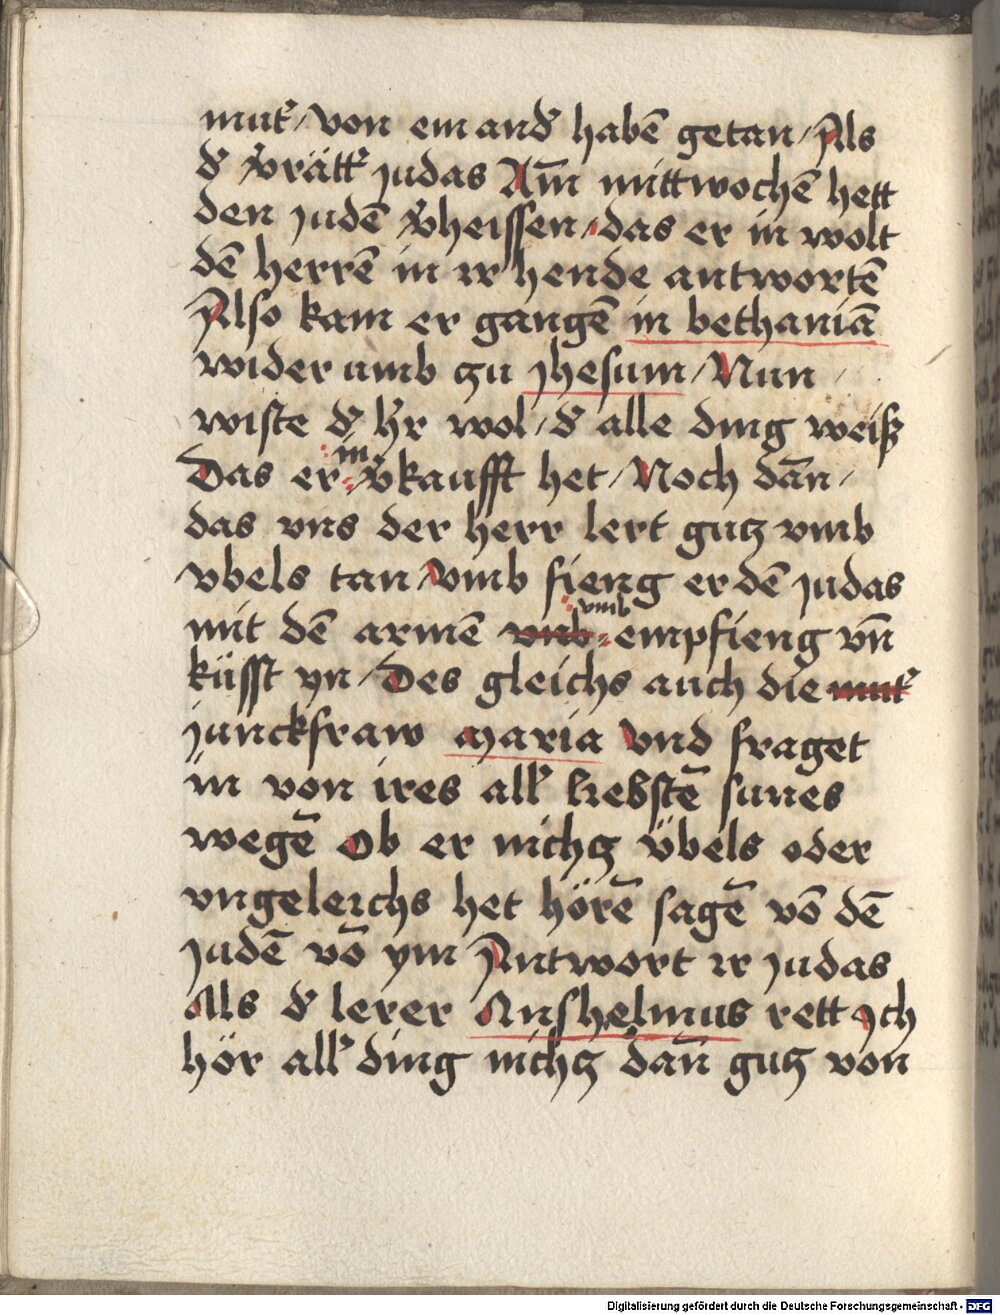 mut͛ / von em and͛ habē getan / Als
d͛ v͛rätt͛ judas Am̄ mittwochē hett
den judē v͛heissen / das er in wolt
dē herrē in ir hende antwortē
Also kam er gangē in bethaniā
wider umb zu jhesum / Nun
wiste d͛ h͛r wol / d͛ alle ding weiß
Das er in v͛kaufft het / Noch dān /
das vns der herr lert gutz vmb
vbels tan / vmb fieng er dē judas
mit dē armē vmb empfieng vn̄
küsst yn / Des gleichs auch die mut͛
junckfraw maria vnd fraget
in von ires all͛ liebstē sunes
wegē Ob er nichtz übels oder
vngeleichs het hörē sagē vō dē
judē vō ym Antwort ir judas
Als d͛ lerer Anshelmus rett Ich
hör all͛ ding nichtz dan̄ gutz von
Digitalisierung gefördert durch die Deutsche Forschungsgemeinschaft - DFG